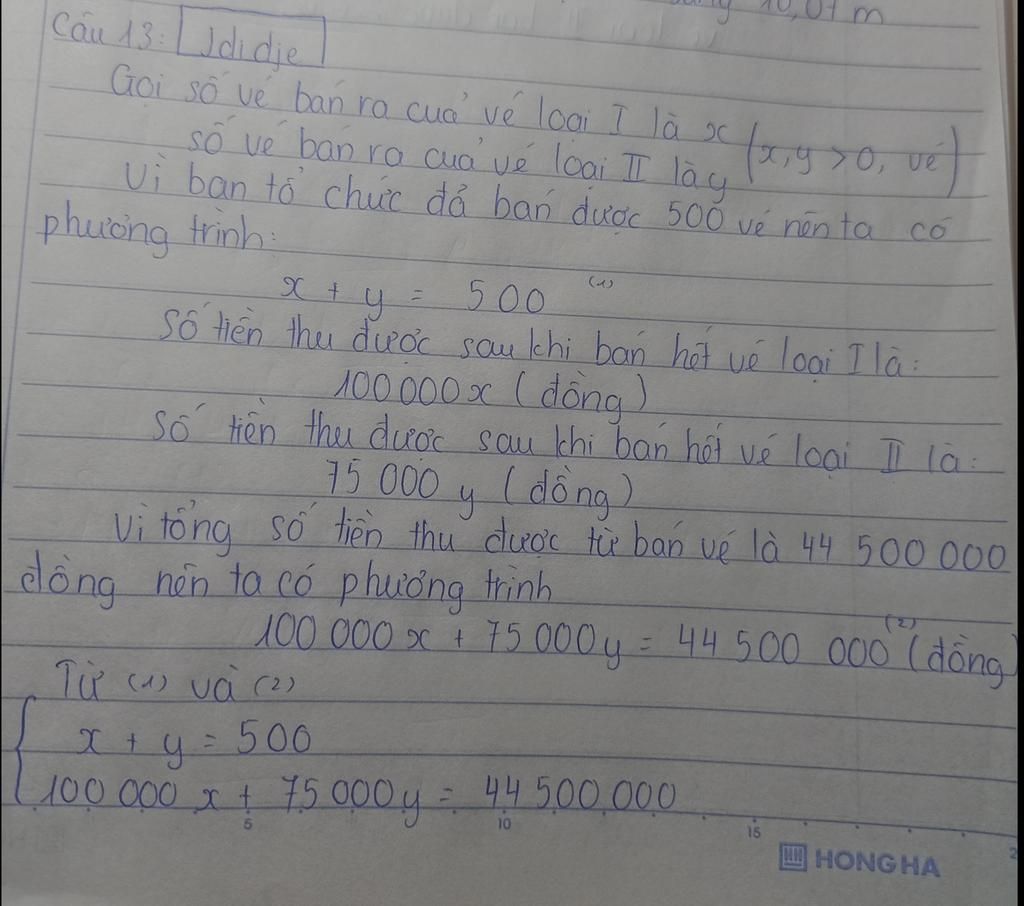 10,01 m
Câu 13: Jdidje
Gọi số vé bán ra của vé loại I là x
số vé bán ra của vé loại II là y (x, y > 0, vé)
Vì ban tổ chức đã bán được 500 vé nên ta có
phương trình:
x + y = 500 (1)
Số tiền thu được sau khi bán hết vé loại I là:
100 000x (đồng)
Số tiền thu được sau khi bán hết vé loại II là:
75 000 y (đồng)
Vì tổng số tiền thu được từ bán vé là 44 500 000
đồng nên ta có phương trình
100 000 x + 75 000y = 44 500 000 (2) (đồng)
Từ (1) và (2)
x + y = 500
100 000 x + 75 000y = 44 500 000
5 10 15 2
HONG HA